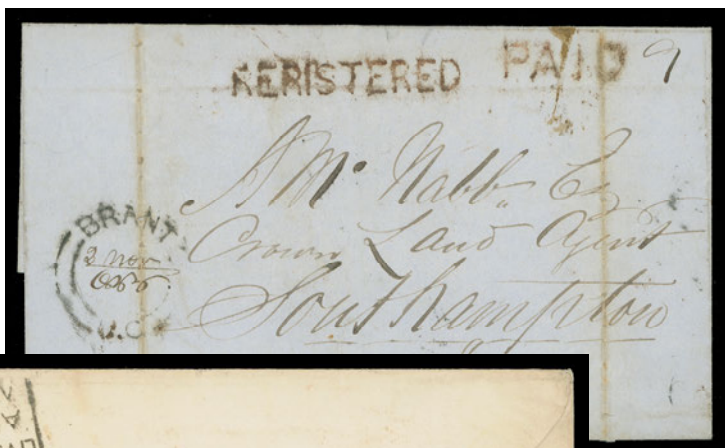 REGISTERED PAID 9
A Mc Nabb Esq
Crown Land Agent
Southampton
BRANT
Nov
U.C